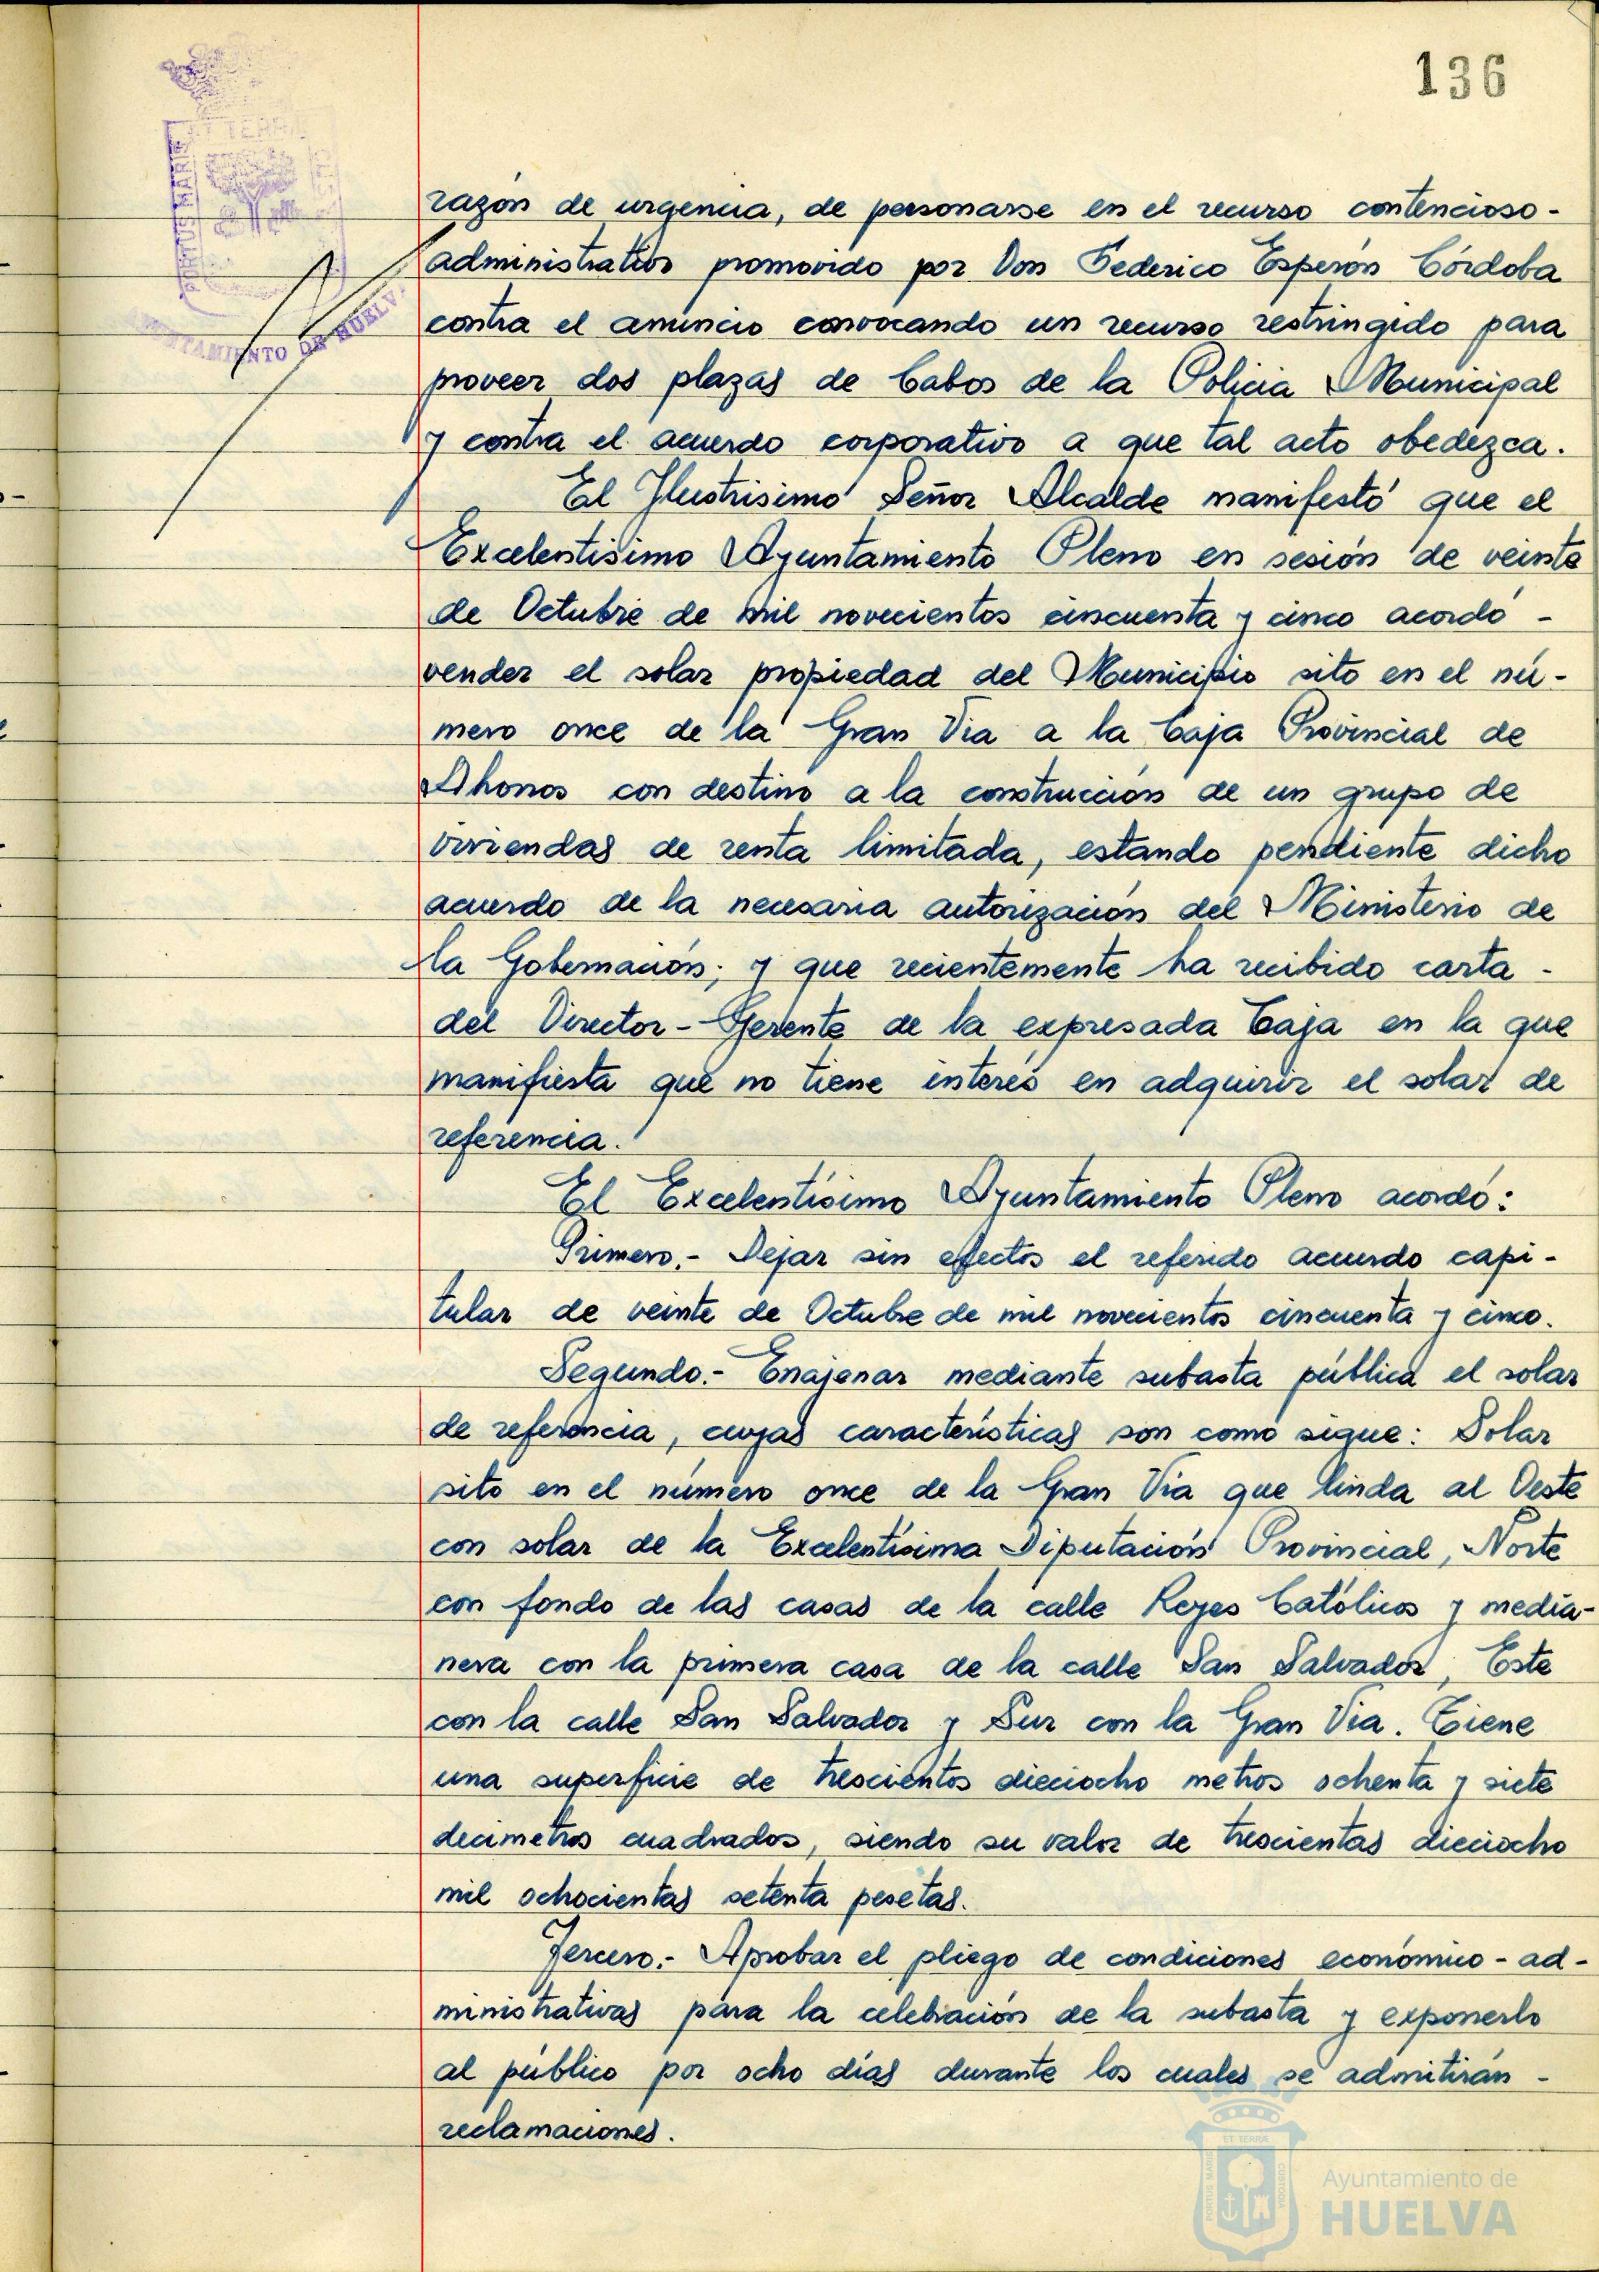 136
PORTUS MARIS ET TERRAE CUSTODIA
AYUNTAMIENTO DE HUELVA
razón de urgencia, de personarse en el recurso contencioso-
administrativo promovido por Don Federico Esperón Córdoba
contra el anuncio convocando un recurso restringido para
proveer dos plazas de Cabos de la Policia Municipal
y contra el acuerdo corporativo a que tal acto obedezca.
El Ilustrisimo Señor Alcalde manifestó que el
Excelentisimo Ayuntamiento Pleno en sesión de veinte
de Octubre de mil novecientos cincuenta y cinco acordó -
vender el solar propiedad del Municipio sito en el nú-
mero once de la Gran Via a la Caja Provincial de
Ahorros con destino a la construcción de un grupo de
viviendas de renta limitada, estando pendiente dicho
acuerdo de la necesaria autorización del Ministerio de
la Gobernación; y que recientemente ha recibido carta -
del Director-Gerente de la expresada Caja en la que
manifiesta que no tiene interés en adquirir el solar de
referencia.
El Excelentísimo Ayuntamiento Pleno acordó:
Primero.- Dejar sin efectos el referido acuerdo capi-
tular de veinte de Octubre de mil novecientos cincuenta y cinco.
Segundo.- Enajenar mediante subasta pública el solar
de referencia, cuyas características son como sigue: Solar
sito en el número once de la Gran Vía que linda al Oeste
con solar de la Excelentísima Diputación Provincial, Norte
con fondo de las casas de la calle Reyes Católicos y media-
nera con la primera casa de la calle San Salvador, Este
con la calle San Salvador y Sur con la Gran Via. Tiene
una superficie de trescientos dieciocho metros ochenta y siete
decimetros cuadrados, siendo su valor de trescientas dieciocho
mil ochocientas setenta pesetas.
Tercero.- Aprobar el pliego de condiciones económico-ad-
ministrativas para la celebración de la subasta y exponerlo
al público por ocho días durante los cuales se admitirán -
reclamaciones.
PORTUS MARIS ET TERRÆ CUSTODIA
Ayuntamiento de
HUELVA